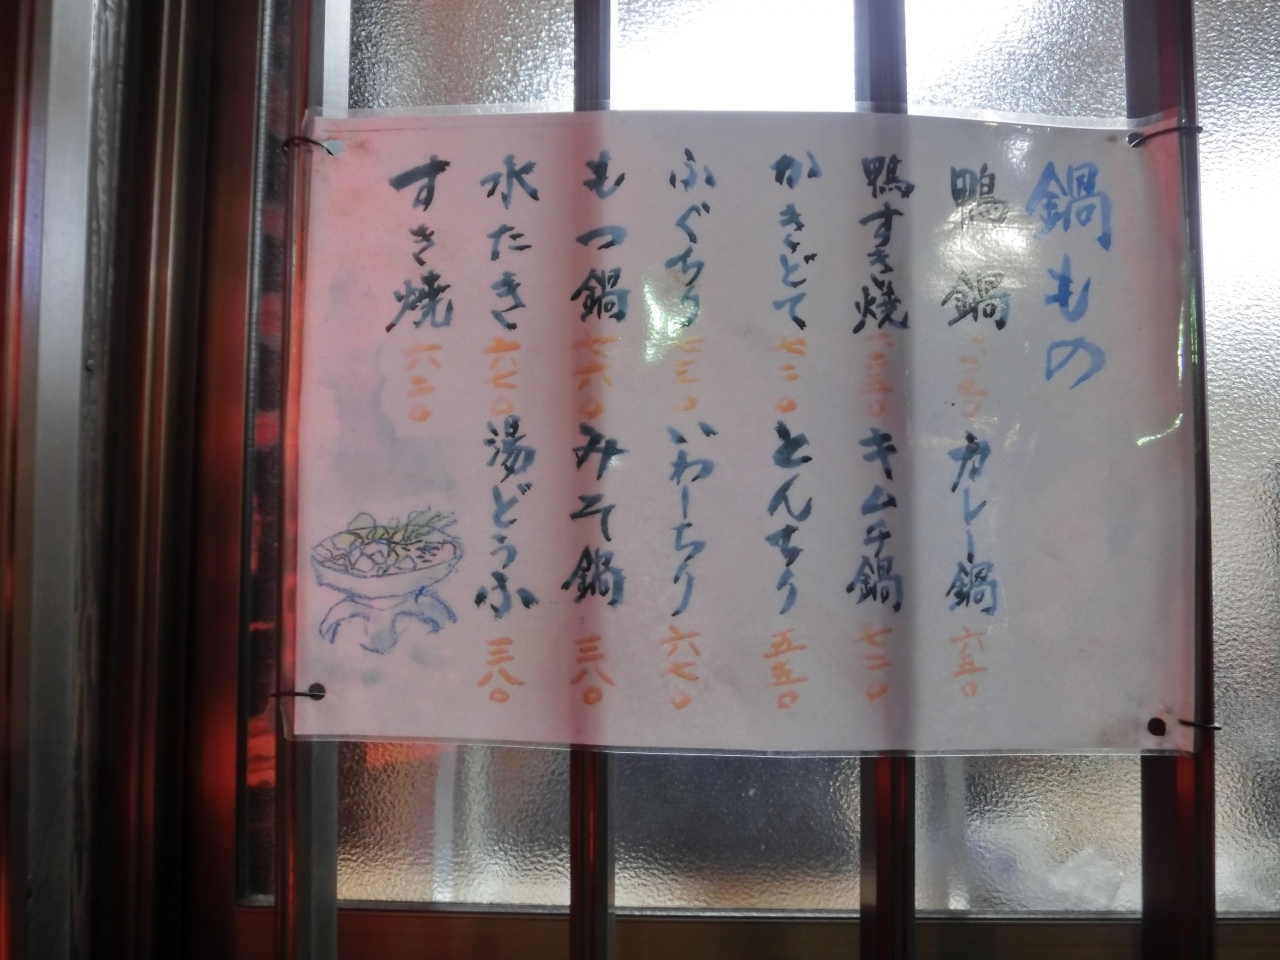 鍋もの
鴨鍋
カレー鍋 六五〇
鴨すき焼
キムチ鍋 七二〇
かきどて 七二〇
とんちり 五五〇
ふぐちり
いわしちり 六七〇
もつ鍋 七六〇
みそ鍋 三八〇
水たき 六七〇
湯どうふ 三八〇
すき焼 六二〇